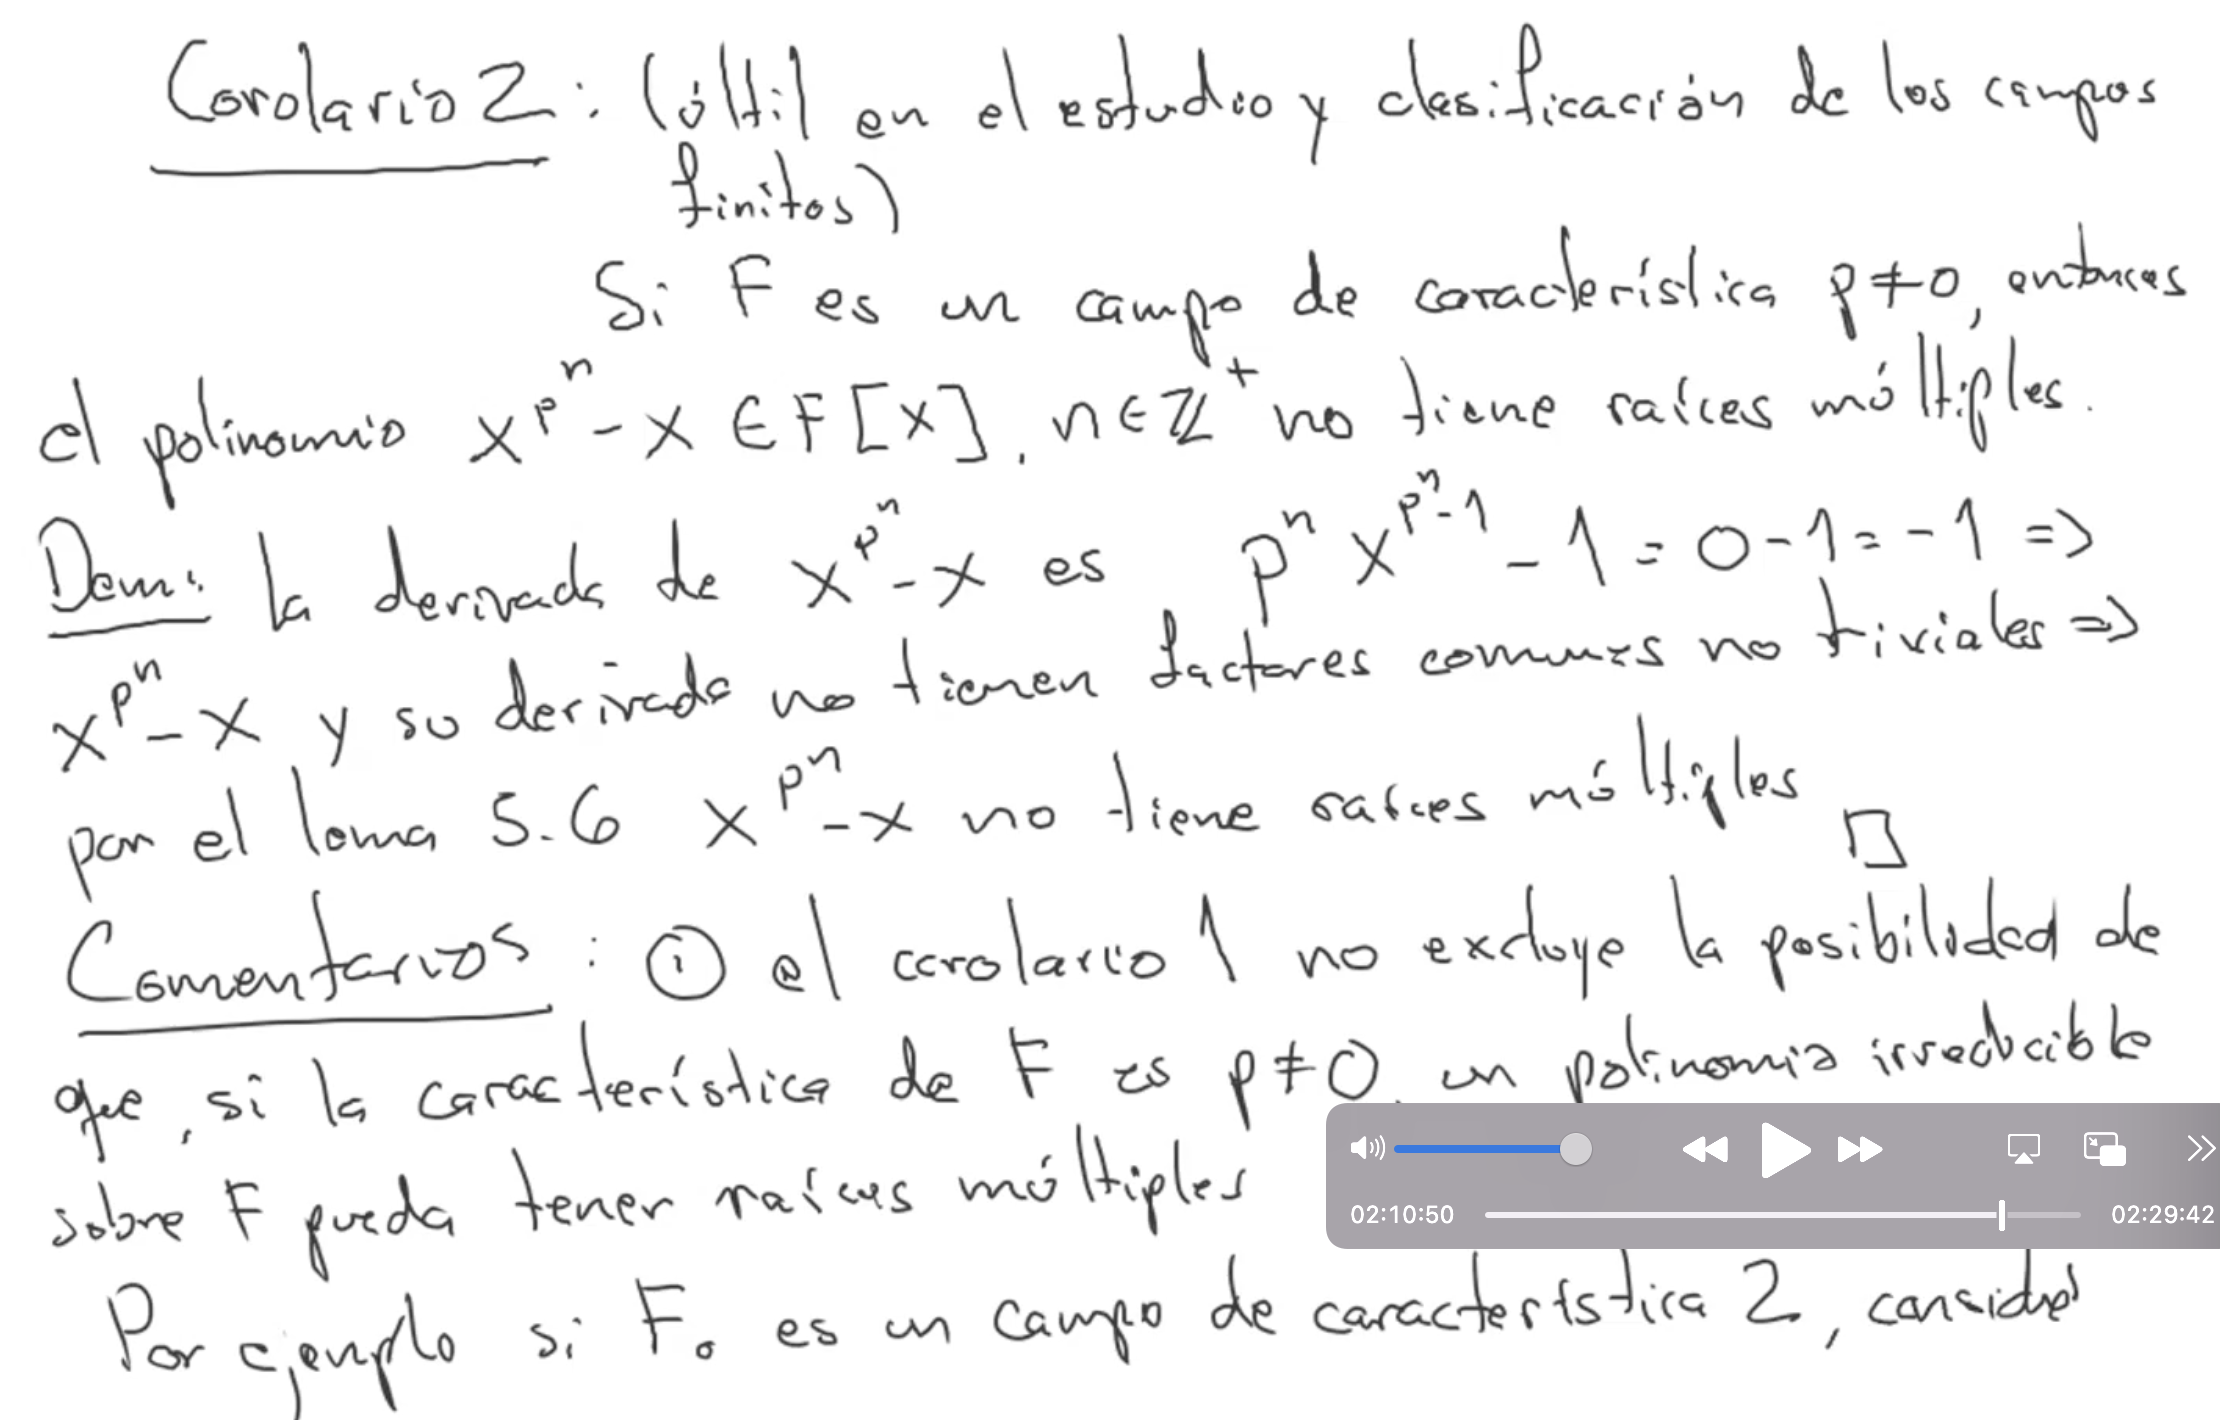 Corolario 2: (útil en el estudio y clasificación de los campos
finitos)
Si F es un campo de característica p≠0, entonces
el polinomio x^{p^n} - x ∈ F[x], n∈ℤ^+ no tiene raíces múltiples.
Dem: la derivada de x^{p^n} - x es p^n x^{p^n - 1} - 1 = 0 - 1 = -1 =>
x^{p^n} - x y su derivada no tienen factores comunes no triviales =>
por el lema 5.6 x^{p^n} - x no tiene raíces múltiples □
Comentarios: ① el corolario 1 no excluye la posibilidad de
que, si la característica de F es p≠0, un polinomio irreducible
sobre F pueda tener raíces múltiples
02:10:50 02:29:42
Por ejemplo si F₀ es un campo de característica 2,